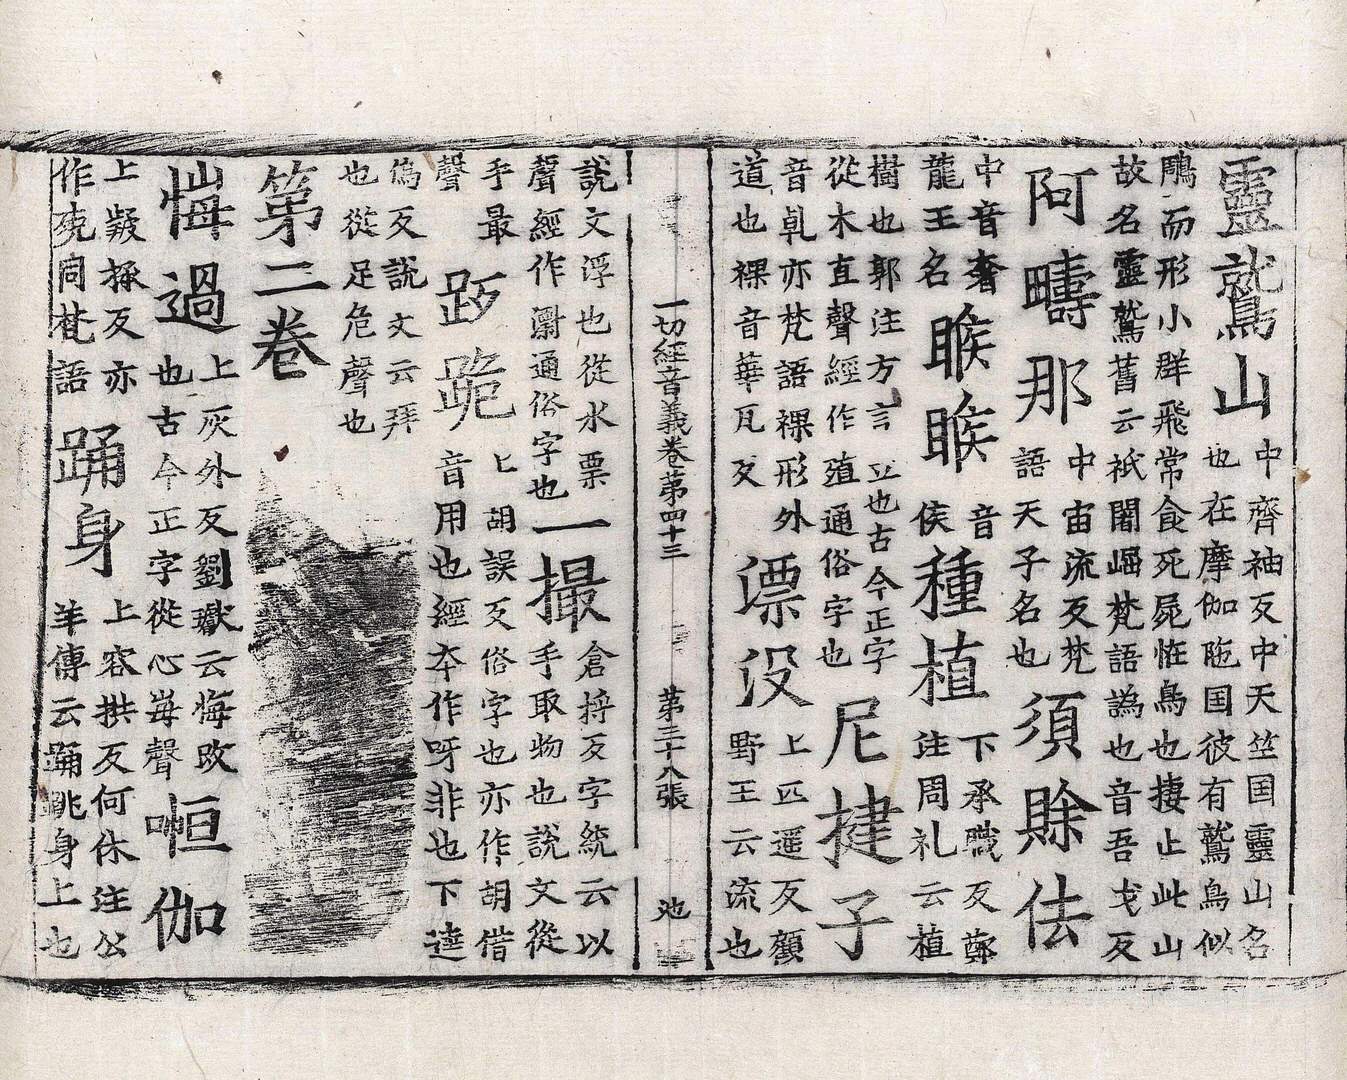 靈鷲山 中齊袖反中天竺国靈山名
也在摩伽陁国彼有鷲鳥似
鵰而形小群飛常食死屍恠鳥也捿止此山
故名靈鷲舊云祇闍崛梵語譌也音吾戈反
阿疇那 中宙流反梵
語天子名也
須賖佉
中音奢
龍王名
睺睺 音
侯
種植 下承職反鄭
注周礼云植
樹也郭注方言云立也古今正字
從木直聲經作殖通俗字也
尼揵子
音乹亦梵語裸形外
道也裸音華瓦反
漂没 上匹遥反顧
野王云流也
一切經音義卷第四十三 第三十八張 池
說文浮也從水票
聲經作㵱通俗字也
一撮 倉捋反字統云以
手取物也說文從
手最
聲
跪 上胡誤反俗字也亦作胡借
音用也經夲作呀非也下逵
僞反說文云拜
也從足危聲也
第二卷
悔過 上灰外反劉瓛云悔改
也古今正字從心每聲
恒伽
上反亦
作殑同梵語
踊身 上容拱反何休注公
羊傳云踊跳身上也